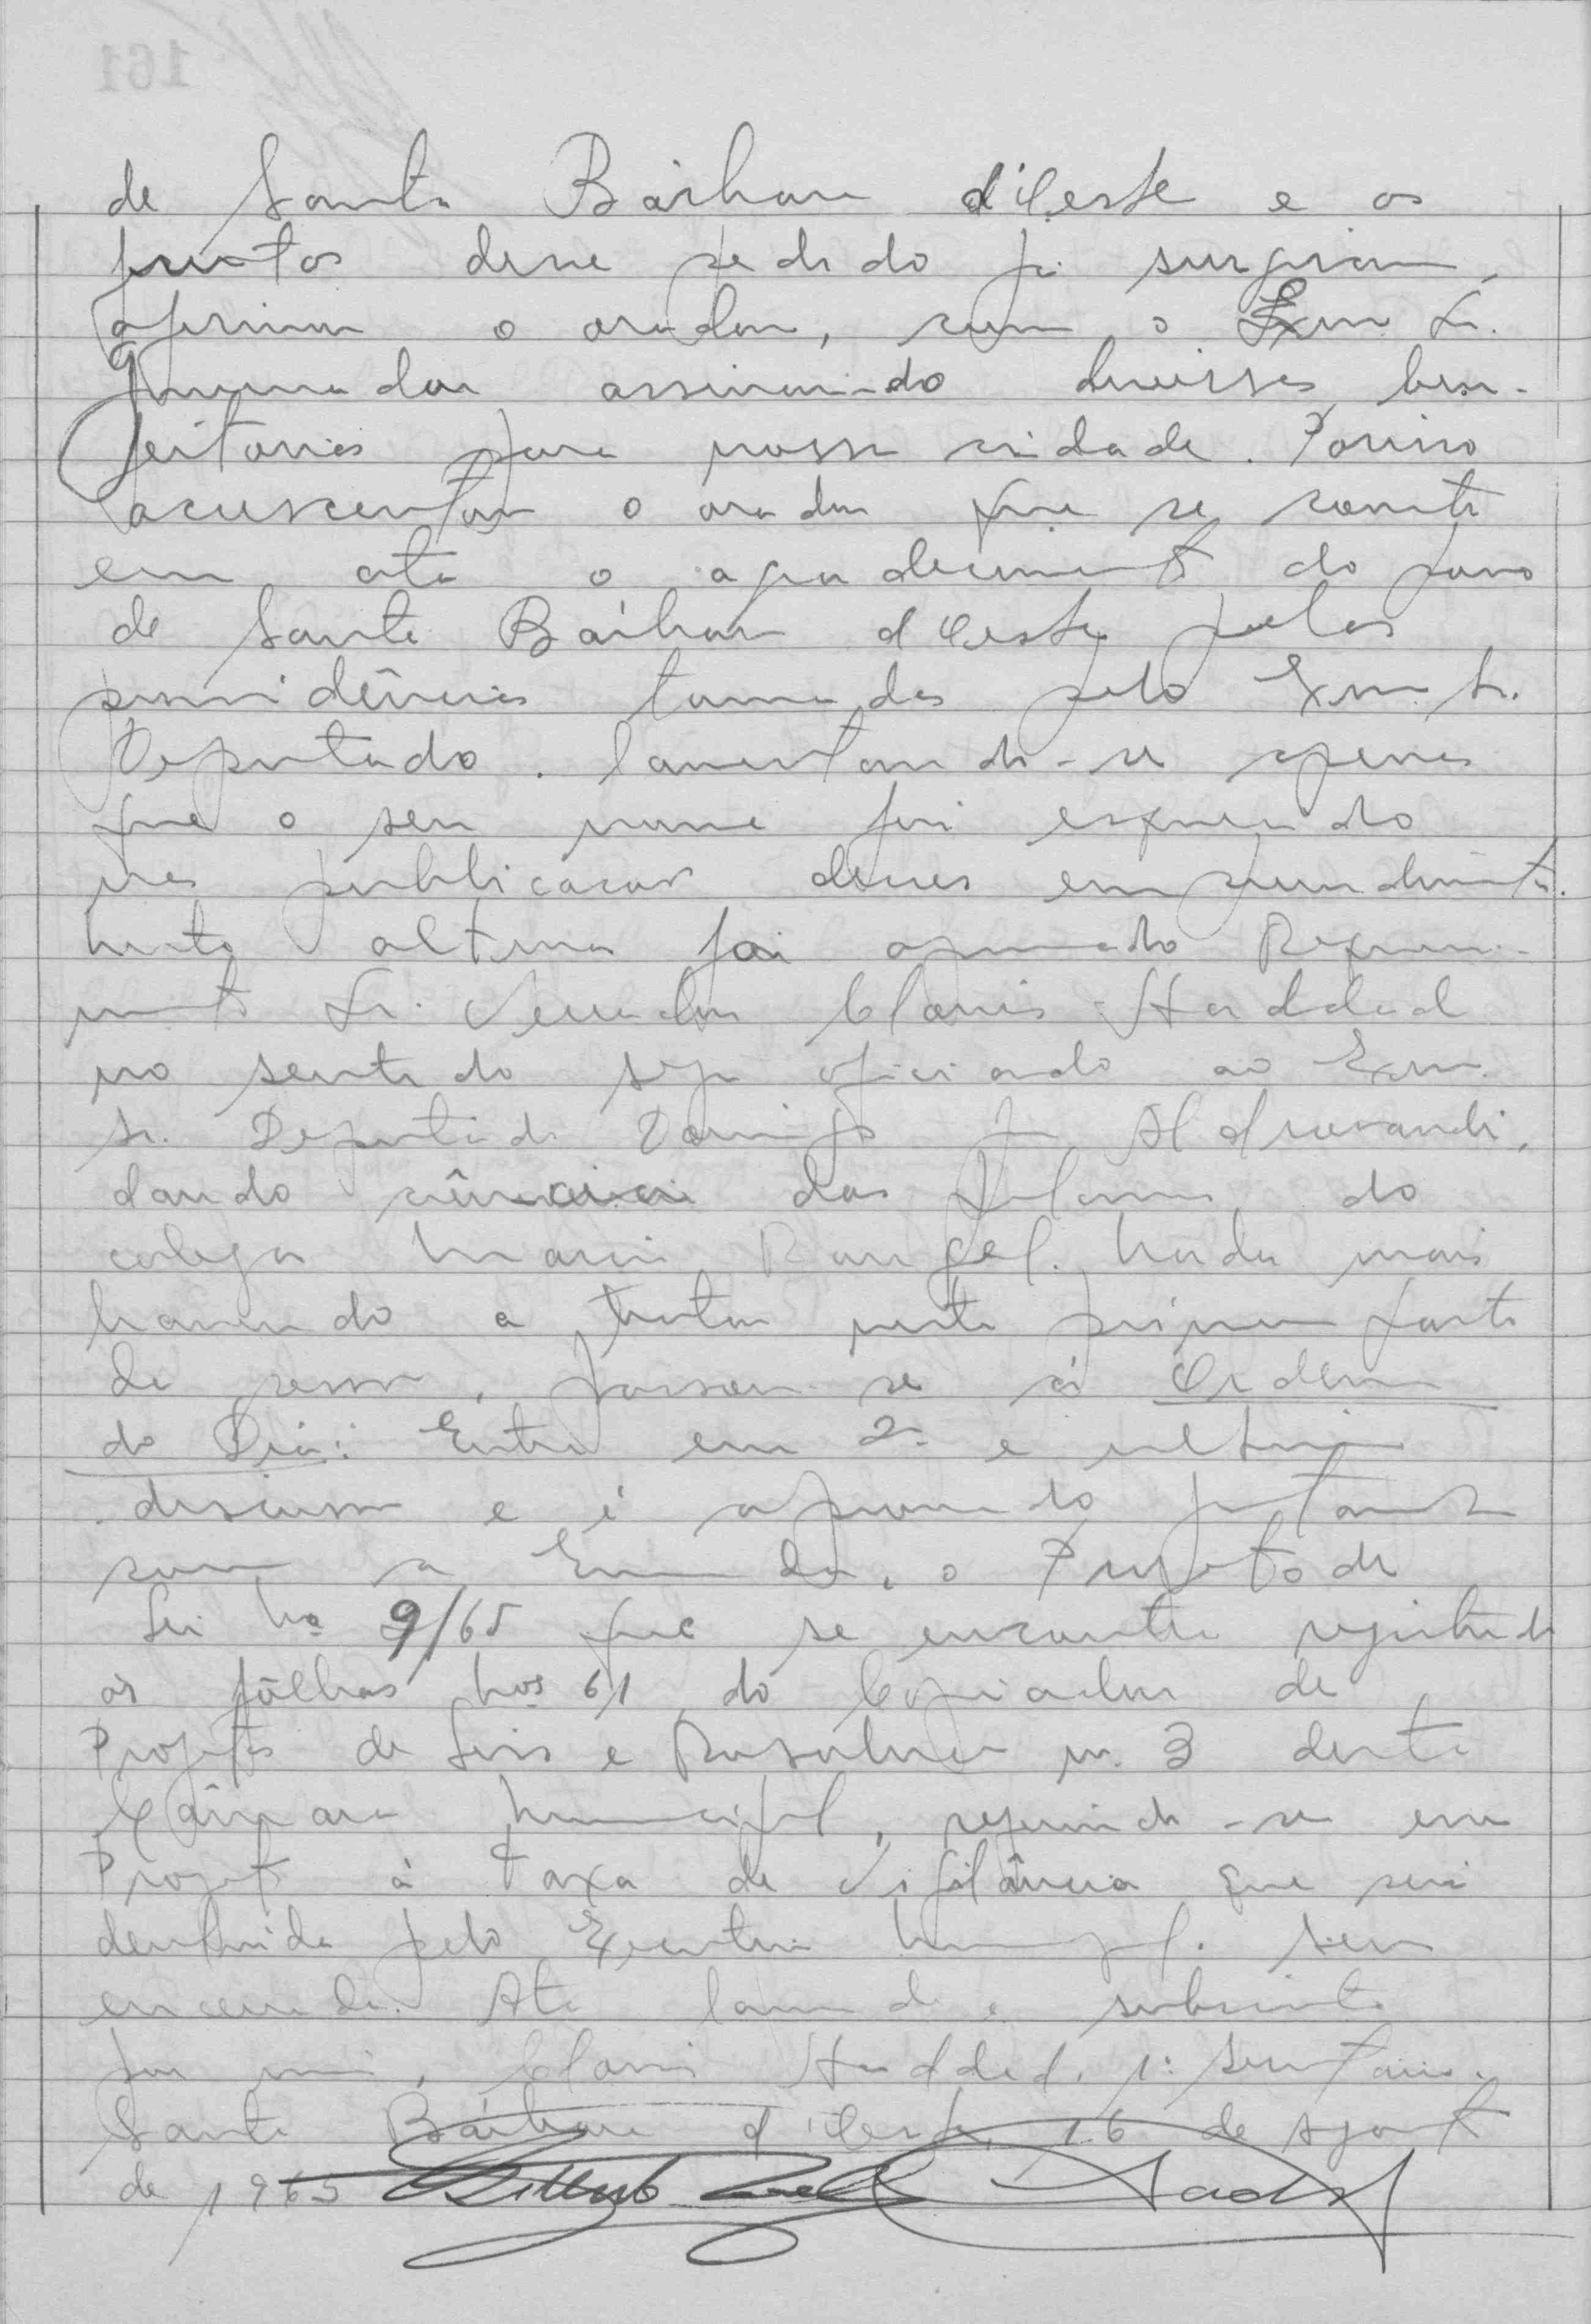 de Santa Bárbara d'Oeste e os
frutos desse pedido já surgiram,
afirmou o orador, com o Exmo Sr.
Governador assinando diversas ben-
feitorias para nossa cidade. Por isso
acrescentou o orador que se conste
em ata o agradecimento do povo
de Santa Bárbara d'Oeste pelas
providências tomadas pelo Exmo. Sr.
Deputado. Lamentando-se apenas
que o seu nome foi esquecido
nas publicações desses empreendimentos.
foi aprovado Requeri-
mento Sr. Vereador Clovis Haddad
no sentido seja oficiando ao Exmo.
Sr. Deputado Domingos J. Aldrovandi,
dando ciência das palavras do
colega Mario Rangel. Nada mais
havendo a tratar nesta primeira parte
da sessão, passou-se à Ordem
do Dia: Entra em 2ª e ultima
discussão e é aprovado juntamente
com a Emenda, o Projeto de
Lei Nº 9/65 que se encontra registrado
as fôlhas Nos 61 do Copiador de
Projetos de Leis e Resoluções n. 3 desta
Câmara Municipal, referindo-se esse
Projeto à Taxa de Vigilância que será
pelo Executivo Municipal. Sessão
encerrada. Ata lavrada e subscrita
por mim, Clovis Haddad, 1º Secretario.
Santa Bárbara d'Oeste, 16 de agosto
de 1965